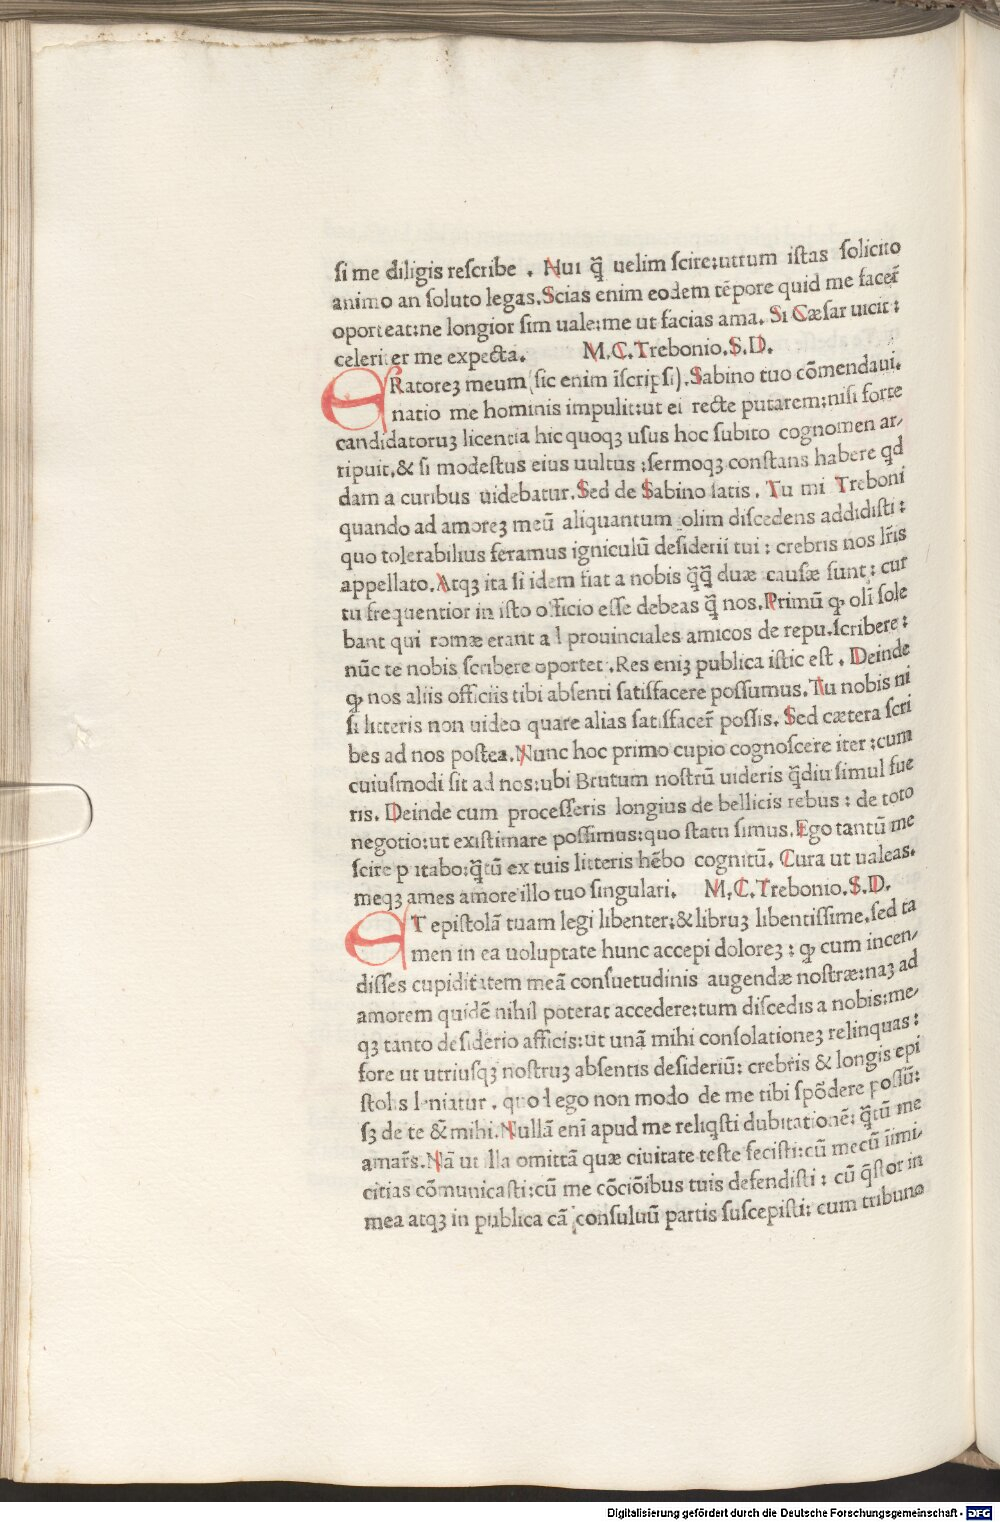 si me diligis rescribe . Nui q̄ uelim scire:utrum istas solicito
animo an soluto legas.Scias enim eodem tēpore quid me facer̄
oporteat:ne longior sim uale:me ut facias ama. Si Cæsar uicit:
celeriter me expecta. M.C.Trebonio.S.D.
ORatoreȝ meum (sic enim īscripsi).Sabino tuo cōmendaui.
natio me hominis impulit:ut ei recte putarem:nisi forte
candidatoruȝ licentia hic quoqȝ usus hoc subito cognomen ar-
ripuit,& si modestus eius uultus :sermoqȝ constans habere qd
dam a curibus uidebatur.Sed de Sabino satis . Tu mi Treboni
quando ad amoreȝ meū aliquantum olim discedens addidisti:
quo tolerabilius feramus igniculū desiderii tui : crebris nos lr̄is
appellato.Atqȝ ita si idem fiat a nobis q̄q̄ duæ causæ sunt: cur
tu frequentior in isto officio esse debeas q̄ nos.Primū qꝫ oli sole
bant qui romæ erant ad prouinciales amicos de repu.scribere:
nūc te nobis scribere oportet .Res eniȝ publica istic est . Deinde
qꝫ nos aliis officiis tibi absenti satisfacere possumus.Tu nobis ni
si litteris non uideo quare alias satisfacer̄ possis. Sed cætera scri
bes ad nos postea.Nunc hoc primo cupio cognoscere iter :cum
cuiusmodi sit ad nos:ubi Brutum nostrū uideris q̄diu simul fue
ris. Deinde cum processeris longius de bellicis rebus : de toto
negotio:ut existimare possimus:quo statu simus.Ego tantū me
scire p itabo:q̄tū ex tuis litteris hēbo cognitū. Cura ut ualeas.
meqȝ ames amore illo tuo singulari. M.C.Trebonio.S.D.
ET epistolā tuam legi libenter:& libruȝ libentissime.sed ta
men in ea uoluptate hunc accepi doloreȝ : qꝫ cum incen-
disses cupiditatem meā consuetudinis augendæ nostræ:naȝ ad
amorem quidē nihil poterat accedere:tum discedis a nobis:me-
qȝ tanto desiderio afficis:ut unā mihi consolationeȝ relinquas:
fore ut utriusqȝ nostruȝ absentis desideriū: crebris & longis epi
stolis leniatur . quod ego non modo de me tibi spōdere possū:
sȝ de te & mihi.Nullā eni apud me reliqsti dubitationē: q̄tū me
amar̄s.Nā ut illa omittā quæ ciuitate teste fecisti:cū mecū iimi-
citias cōmunicasti:cū me cōciōibus tuis defendisti : cū q̄stor in
mea atqȝ in publica cā consuluū partis suscepisti: cum tribuno
Digitalisierung gefördert durch die Deutsche Forschungsgemeinschaft - DFG